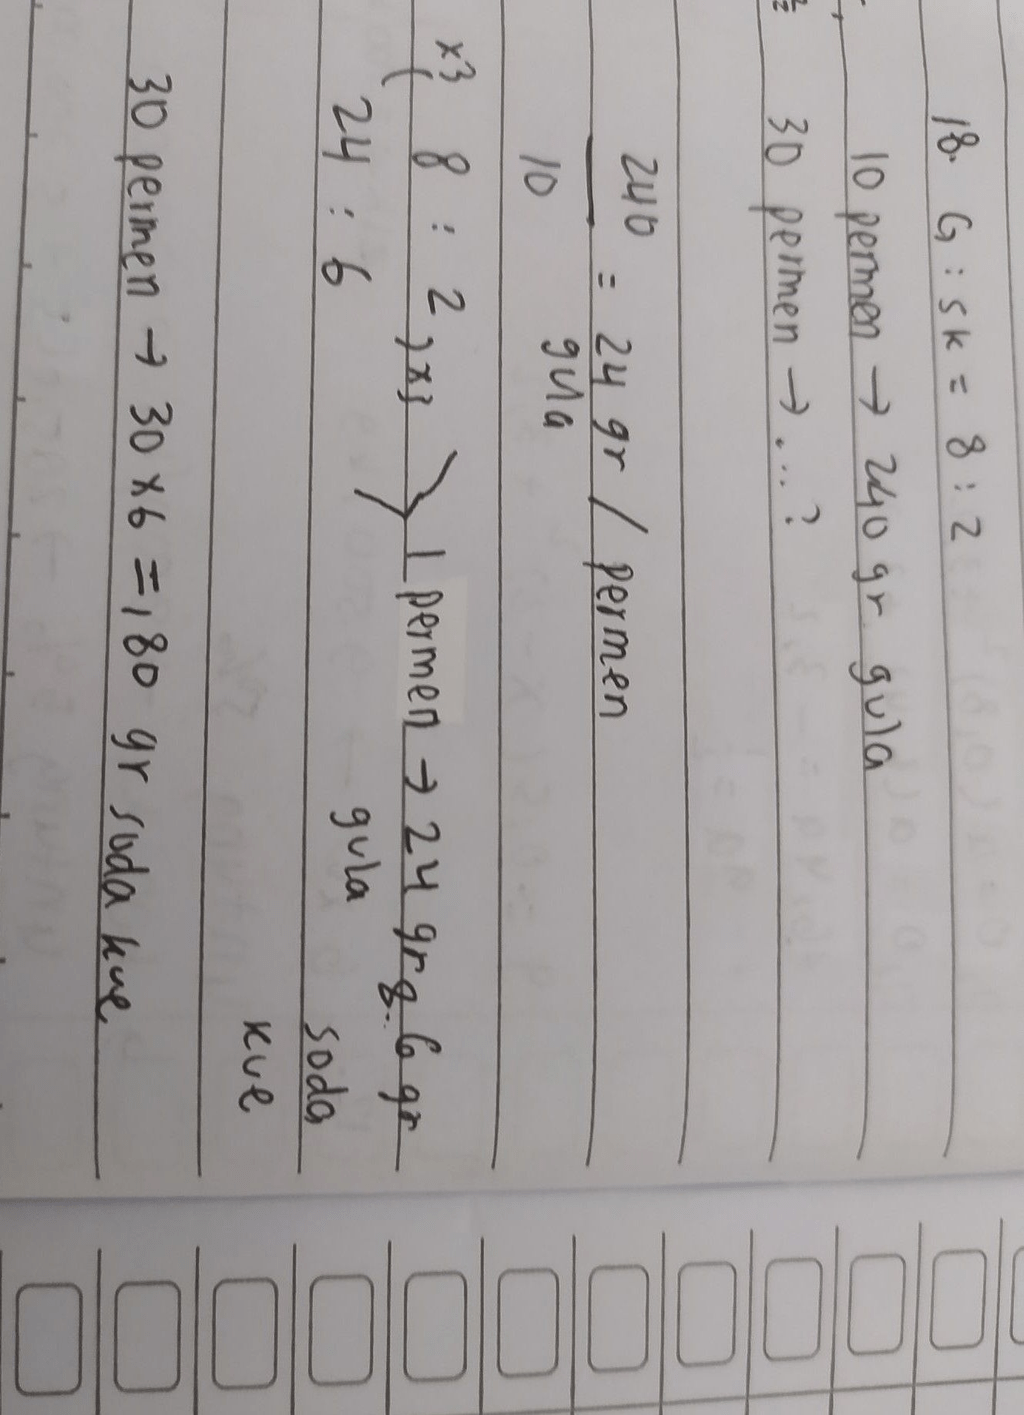 18. G : sk = 8 : 2
10 permen → 240 gr gula
30 permen → ...?
240
= 24 gr / permen
10 gula
x3 8 : 2 x3 1 permen → 24 gr & 6 gr
24 : 6 gula soda
kue
30 permen → 30 x 6 = 180 gr soda kue